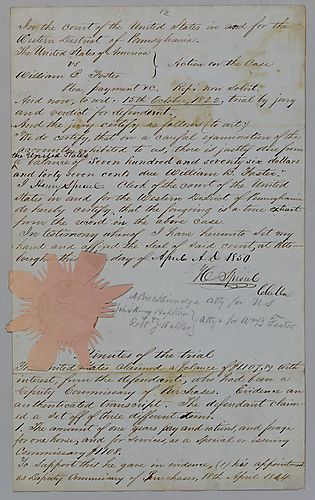 12
In the court of the United States in and for the
Western District of Pennsylvania.
The United States of America
vs } Action on the Case
William B. Foster
Plea payment &c. Repn non solvit
And now, to wit: 15th October, 1822, trial by jury
and verdict for defendant.
And the jury certify as follows (to wit)
"We do certify, that on a careful examination of the
accounts exhibited to us, there is justly due from
the United States
a balance of Seven hundred and seventy six dollars
and forty seven cents due William B. Foster."
I Henry Sproul Clerk of the court of the United
States in and for the Western District of Pennsylvania
do hereby certify, that the foregoing is a true extract
from the record in the above case.
In testimony whereof I have hereunto set my
hand and affixed the Seal of said court, at Pitts-
burgh the day of April A.D 1850
H Sproul
Clerk
A Brackenridge atty for U S
Henry Hopkins
Robt J Walker } Attys for Wm B Foster
Minutes of the trial
The United States claimed a balance of $1107,79 with
interest, from the defendant, who had been a
Deputy Commissary of Purchases. Evidence an
authenticated transcript. The defendant claim-
ed a set off of three different items.
1. The amount of one years pay and rations, and forage
for one horse, and for services, as a special or issuing
Commissary $1108.
To support this he gave in evidence, (1) his appointment
as Deputy Commissary of Purchases, 18th April 1814